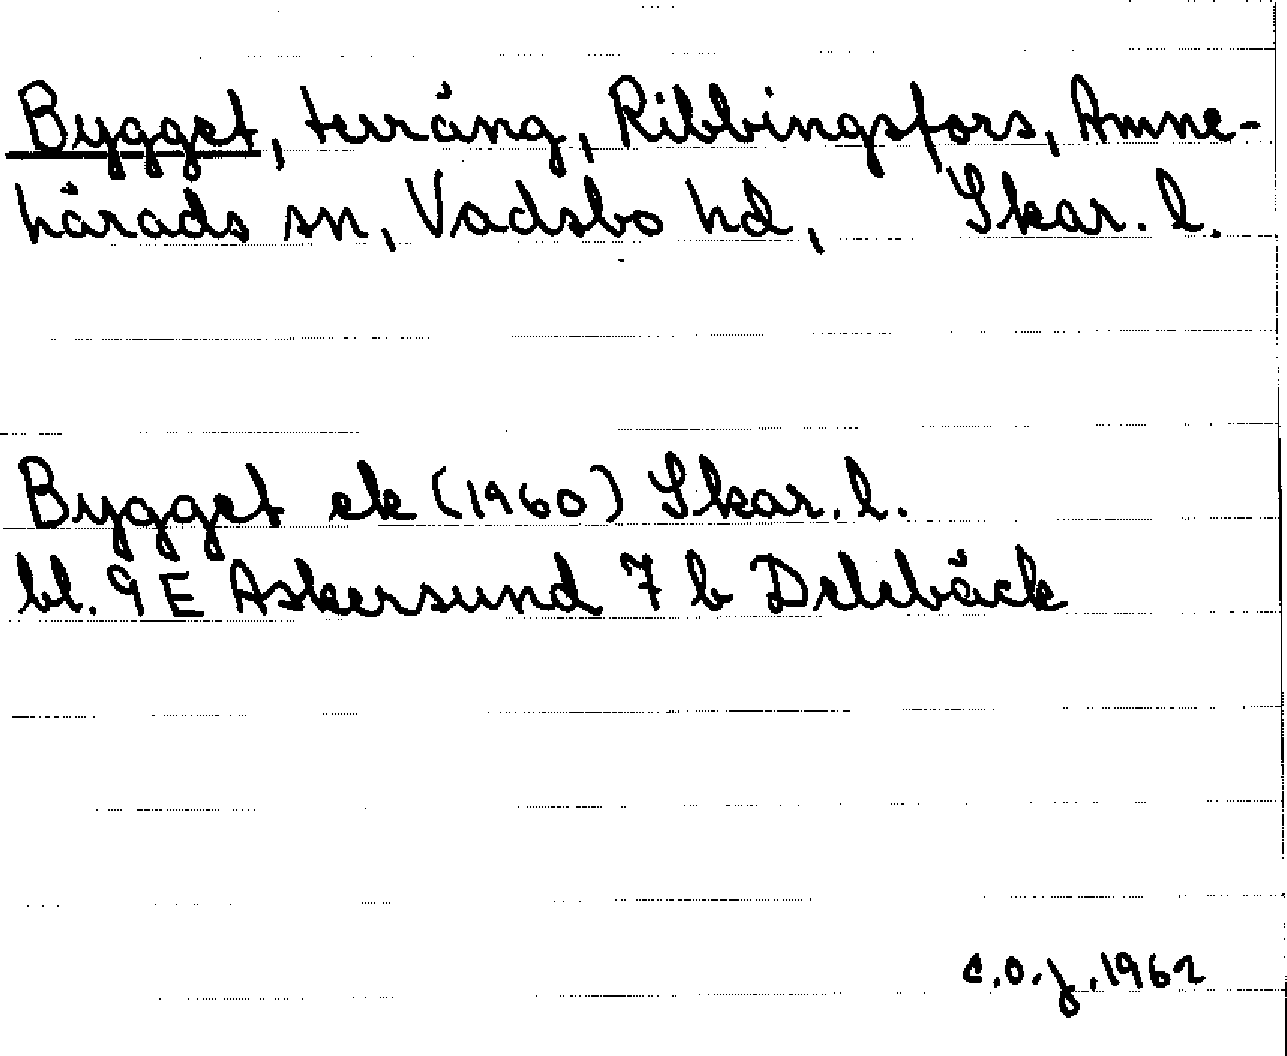 Bygget, terräng, Ribbingsfors, Amne-
härads sn, Vadsbo hd, Skar. l.
Bygget ek (1960) Skar. l.
bl. 9 E Askersund 7 b Delebäck
C.O.J. 1962